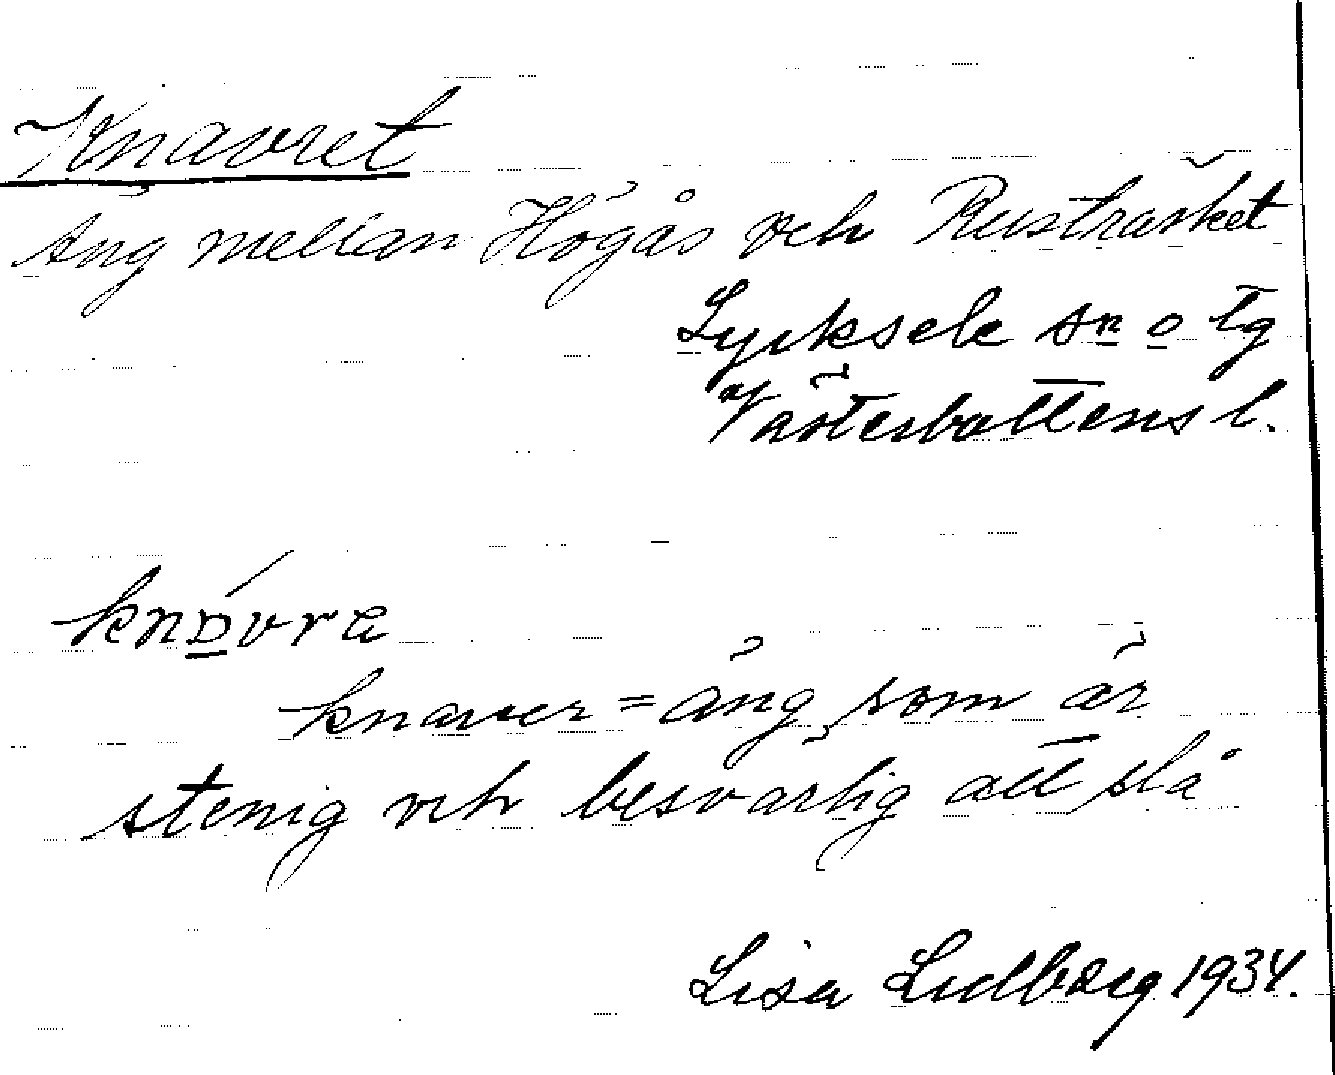 Knavret
Äng mellan Högås och Rusträsket
Lycksele sn o tg
Västerbottens l.
knavra
knaver = äng, som är
stenig och besvärlig att slå
Lisa Lidberg 1934.